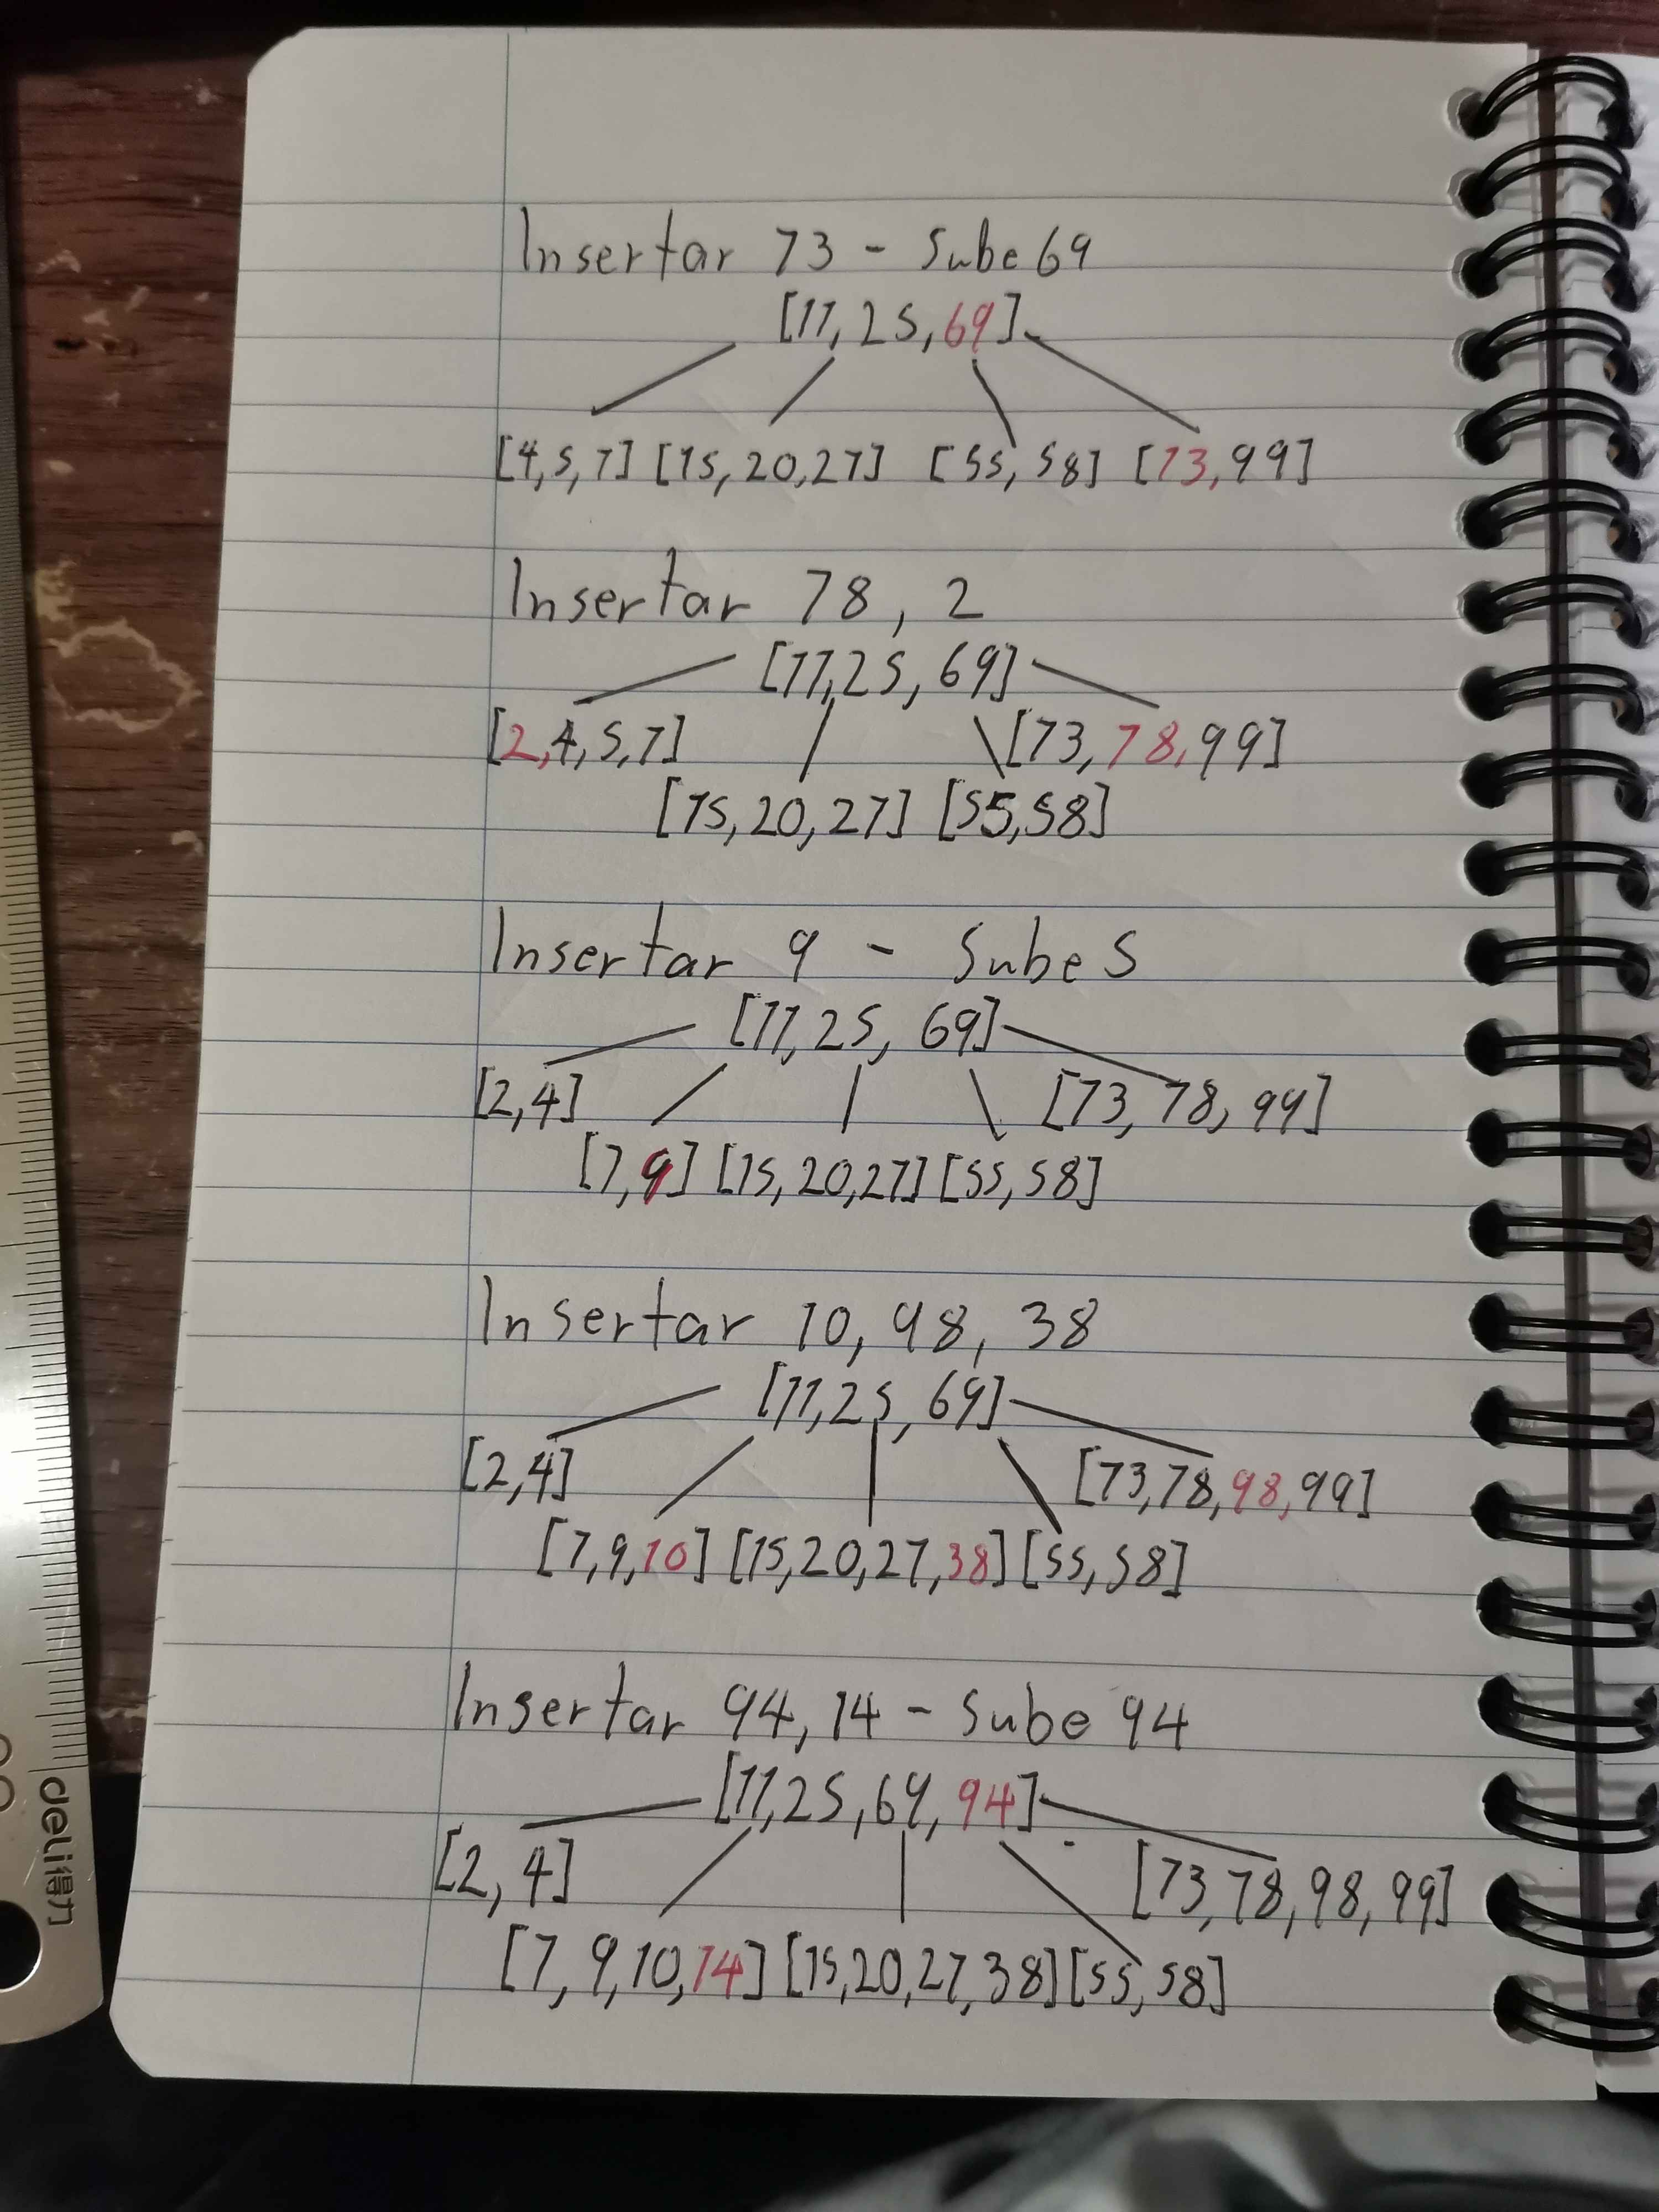 Insertar 73 - Sube 69
[11, 25, 69]
[4, 5, 7] [15, 20, 27] [55, 58] [73, 99]
Insertar 78, 2
[11, 25, 69]
[2, 4, 5, 7] [73, 78, 99]
[15, 20, 27] [55, 58]
Insertar 9 - Sube 5
[11, 25, 69]
[2, 4] [73, 78, 99]
[7, 9] [15, 20, 27] [55, 58]
Insertar 10, 98, 38
[11, 25, 69]
[2, 4] [73, 78, 98, 99]
[7, 9, 10] [15, 20, 27, 38] [55, 58]
Insertar 94, 14 - Sube 94
[11, 25, 69, 94]
[2, 4] [73, 78, 98, 99]
[7, 9, 10, 14] [15, 20, 27, 38] [55, 58]
deli得力